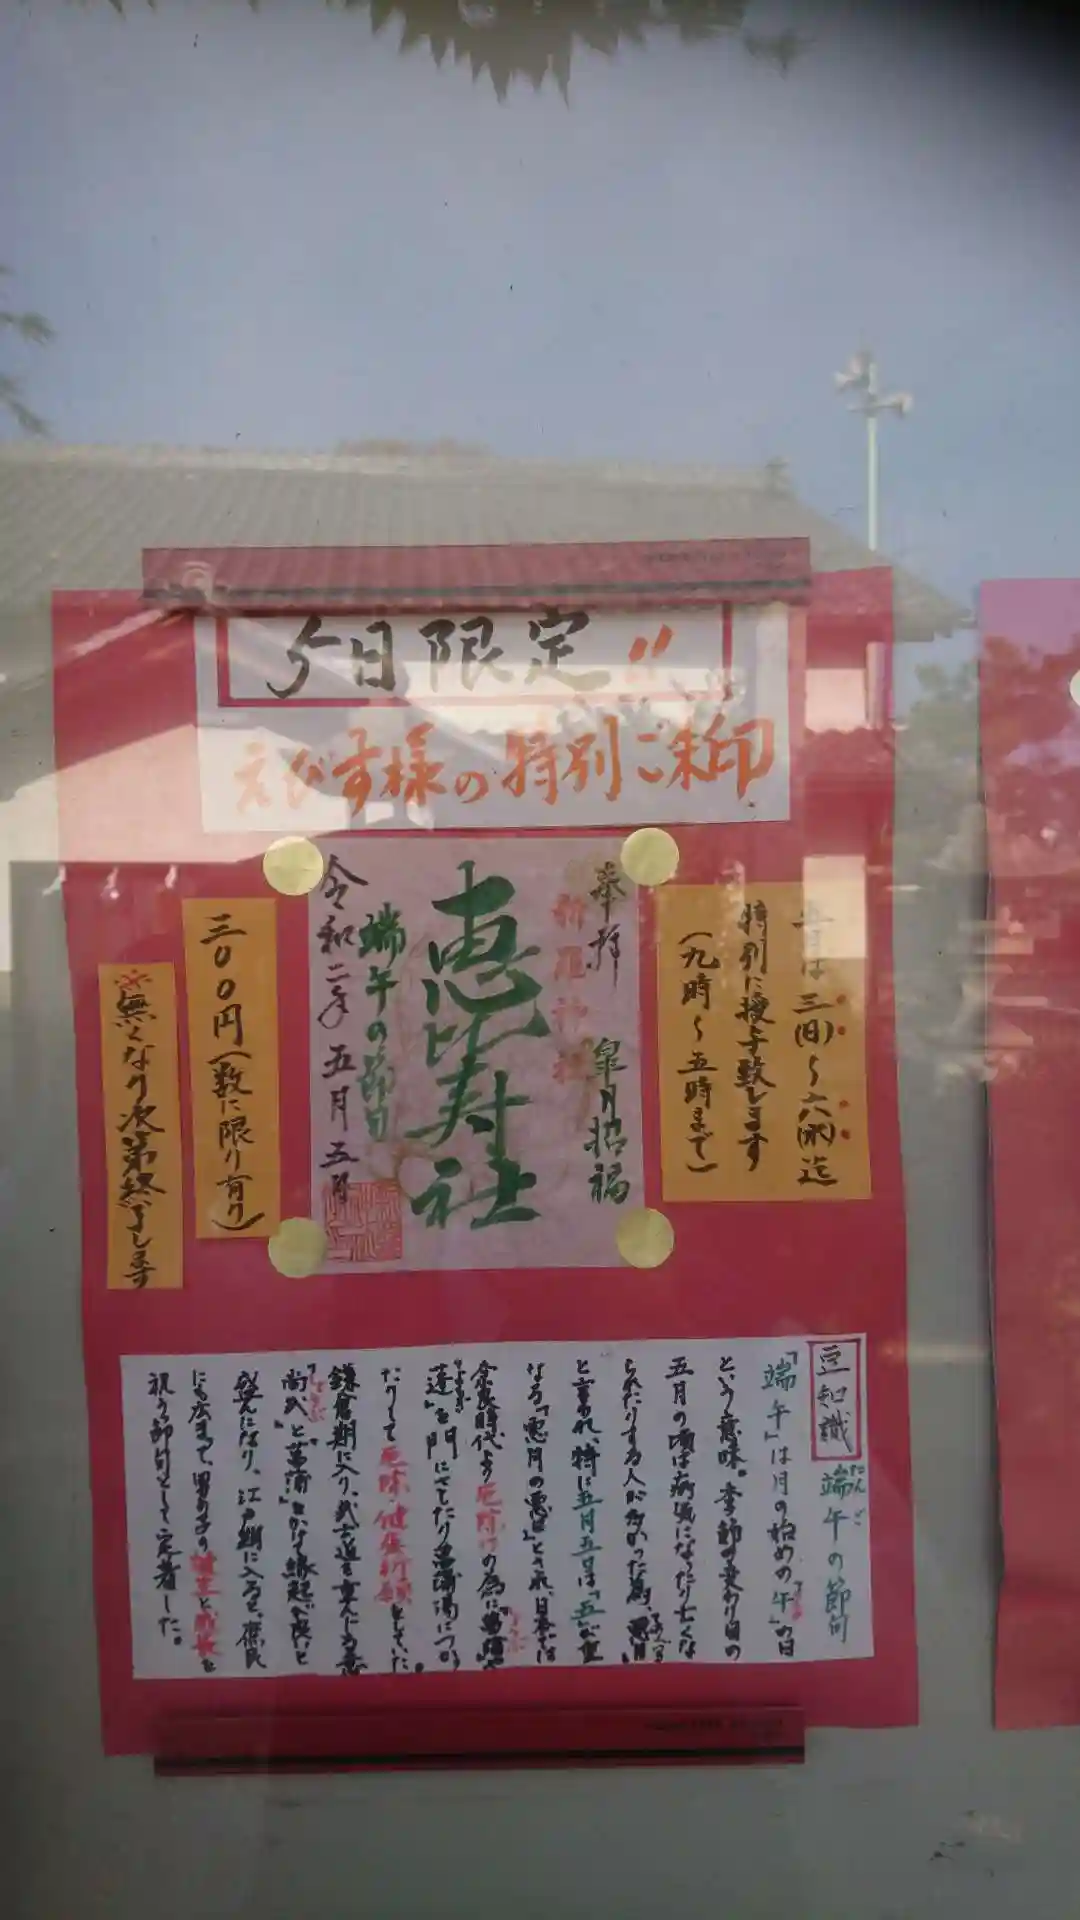 今日限定!!
えびす様の特別ご朱印
五月は三(日)〜六(水)迄
特別に授与致します
(九時〜五時まで)
奉拝 皐月招福
恵比寿社
端午の節句
令和二年五月五日
三〇〇円(数に限り有り)
※無くなり次第終了します
豆知識 端午の節句
たんご
「端午」は月の始めの「午」の日
という意味。季節の変わり目の
五月の頃は病気になったり亡くな
られたりする人が多かった為、「悪月」
と言われ、特に五月五日は「五」が重
なる「悪月の悪日」とされ、日本では
奈良時代より厄除けの為に「菖蒲」や
「蓬」を門にさしたり菖蒲湯につかっ
たりして厄除・健康祈願としていた。
鎌倉期に入り、武士道を重んじる意
「尚武」と「菖蒲」をかけて縁起が良いと
盛んになり、江戸期に入ると、庶民
にも広まって、男の子の健康と成長を
祝う節句として定着した。